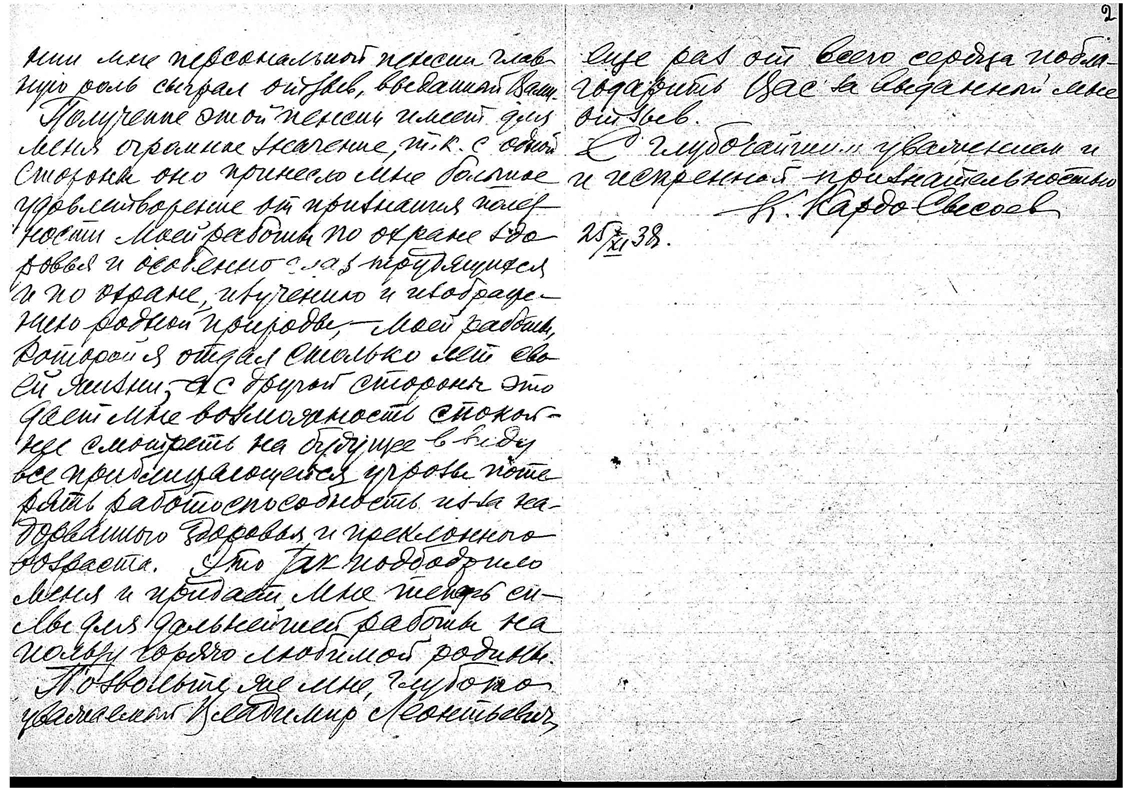 нии мне персональной пенсии глав-
ную роль сыграл отзыв, выданный Вами.
Получение этой пенсии имеет для
меня огромное значение, т.к. с одной
стороны оно принесло мне большое
удовлетворение от признания полез
ности моей работы по охране здо
ровья и особенно глаз трудящихся
и по охране, изучению и изображе-
нию родной природы, – моей работы,
которой я отдал столько лет сво
ей жизни, – а с другой стороны это
дает мне возможность спокой-
нее смотреть на будущее в виду
все приближающейся угрозы поте
рять работоспособность из за на-
дорванного здоровья и преклонного
возраста. Это так подбодрило
меня и придает мне теперь си-
лы для дальнейшей работы на
пользу горячо любимой родины.
Позвольте же мне, глубоко
уважаемый Владимир Леонтьевич,
2
еще раз от всего сердца побла-
годарить Вас за выданный мне
отзыв.
С глубочайшим уважением и
и искренной признательностью
К. Кардо Сысоев
25/XI 38.